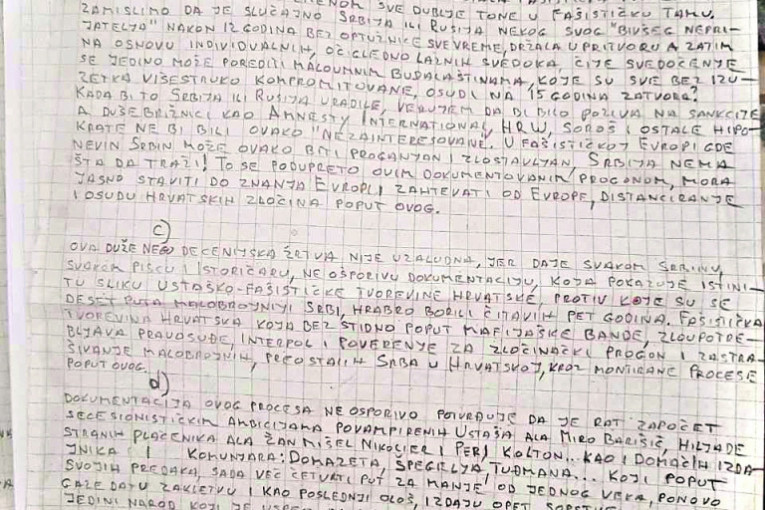 SVE DUBLJE TONE U FAŠISTIČKU TAMU.
ZAMISLIMO DA JE SLUČAJNO SRBIJA ILI RUSIJA NEKOG SVOG "BIVŠEG NEPRI-
JATELJA" NAKON 12 GODINA BEZ OPTUŽNICE SVE VREME, DRŽALA U PRITVORU A ZATIM
NA OSNOVU INDIVIDUALNIH, OČIGLEDNO LAŽNIH SVEDOKA, ČIJE SVEDOČENJE
SE JEDINO MOŽE POREDITI MALOUMNIM BUDALAŠTINAMA, KOJE SU SVE BEZ IZU-
ZETKA VIŠESTRUKO KOMPROMITOVANE, OSUDI NA 15 GODINA ZATVORA?
KADA BI TO SRBIJA ILI RUSIJA URADILE, VERUJEM DA BI BILO POZIVA NA SANKCIJE
A DUŠEBRIŽNICI KAO AMNESTY INTERNATIONAL, HRW, SOROŠ I OSTALE HIPO-
KRATE NE BI BILI OVAKO "NEZAINTERESOVANI". U FAŠISTIČKOJ EVROPI GDE
NEVIN SRBIN MOŽE OVAKO BITI PROGANJAN I ZLOSTAVLJAN, SRBIJA NEMA
ŠTA DA TRAŽI! TO SE PODUPRETO OVIM DOKUMENTOVANIM PROGONOM, MORA
JASNO STAVITI DO ZNANJA EVROPI, I ZAHTEVATI OD EVROPE, DISTANCIRANJE
I OSUDU HRVATSKIH ZLOČINA POPUT OVOG.
C)
OVA DUŽE NEGO DECENIJSKA ŽRTVA NIJE UZALUDNA, JER DAJE SVAKOM SRBINU,
SVAKOM PISCU I ISTORIČARU, NE OSPORIVU DOKUMENTACIJU, KOJA POKAZUJE ISTINI-
TU SLIKU USTAŠKO-FAŠISTIČKE TVOREVINE HRVATSKE, PROTIV KOJE SU SE
DESET PUTA MALOBROJNIJI SRBI, HRABRO BORILI ČITAVIH PET GODINA. FAŠISTIČKA
TVOREVINA HRVATSKA KOJA BEZ STIDNO POPUT MAFIJAŠKE BANDE, ZLOUPOTRE-
BLJAVA PRAVOSUĐE, INTERPOL I POVERENJE ZA ZLOČINAČKI PROGON I ZASTRA-
ŠIVANJE MALOBROJNIH, PREOSTALIH SRBA U HRVATSKOJ, KROZ MONTIRANE PROCESE
POPUT OVOG.
d)
DOKUMENTACIJA OVOG PROCESA NE OSPORIVO POTVRĐUJE DA JE RAT ZAPOČET
SECESIONISTIČKIM AMBICIJAMA POVAMPIRENIH USTAŠA ALA MIRO BARIŠIĆ, HILJADE
STRANIH PLAĆENIKA ALA ŽAN MIŠEL NIKOLIER I PERI KOLTON... KAO I DOMAĆIH IZDA-
JNIKA I KOMUNJARA: DOMAZETA, ŠPEGELJA, TUĐMANA... KOJI POPUT
SVOJIH PREDAKA, SADA VEĆ ČETVRTI PUT ZA MANJE OD JEDNOG VEKA, PONOVO
GAZE DATU ZAKLETVU I KAO POSLEDNJI OLOŠ, IZDAJU OPET
JEDINI NAROD KOJI JE